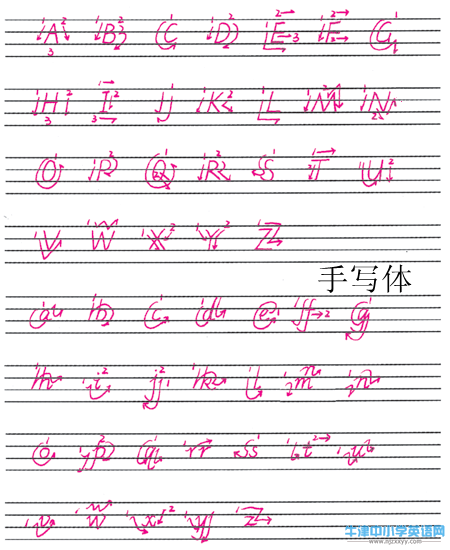 A B C D E F G
H I J K L M N
O P Q R S T U
V W X Y Z
手写体
a b c d e f g
h i j k l m n
o p q r s t u
v w x y z
牛津中小学英语网
www.njzxxyy.com